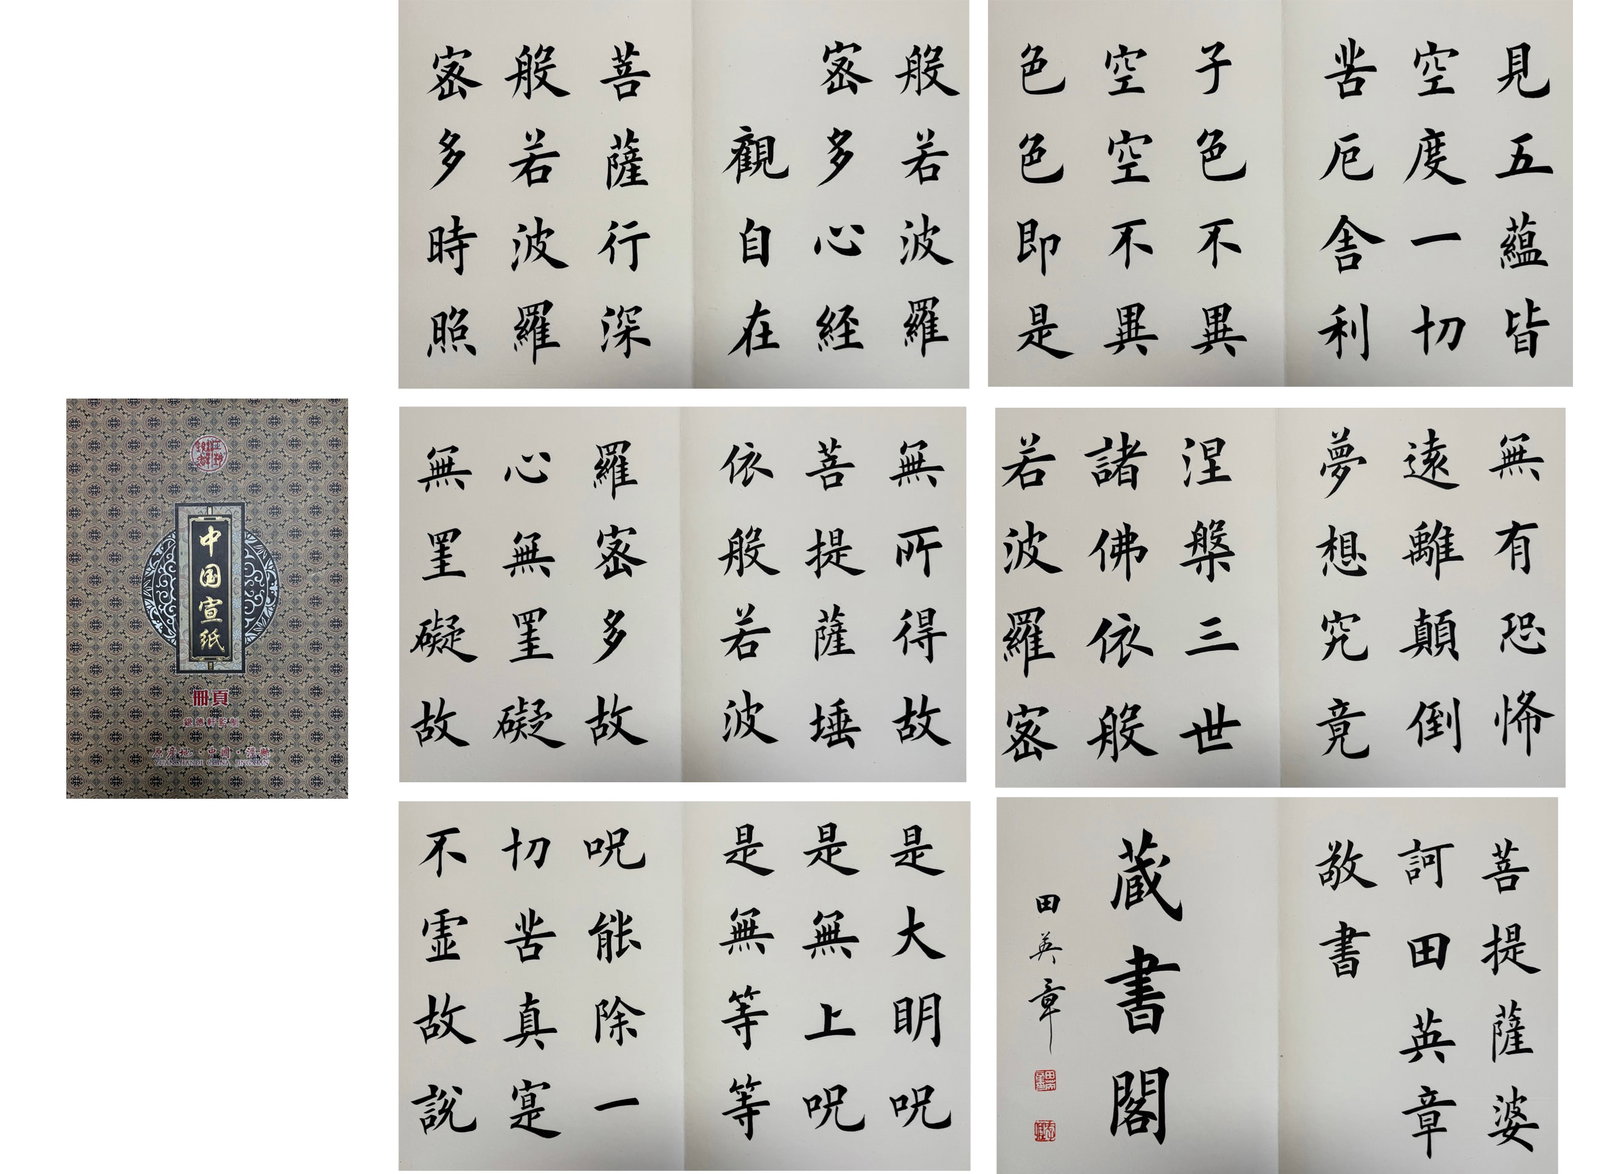 中国宣纸
冊頁
般若波羅
密多心経
觀自在
菩薩行深
般若波羅
密多時照
見五蘊皆
空度一切
苦厄舎利
子色不異
空空不異
色色即是
無所得故
菩提薩埵
依般若波
羅密多故
心無罣礙
無罣礙故
無有恐怖
遠離顛倒
夢想究竟
涅槃三世
諸佛依般
若波羅密
是大明呪
是無上呪
是無等等
呪能除一
切苦真寔
不虛故說
菩提薩婆
訶田英章
敬書
蔵書閣
田英章